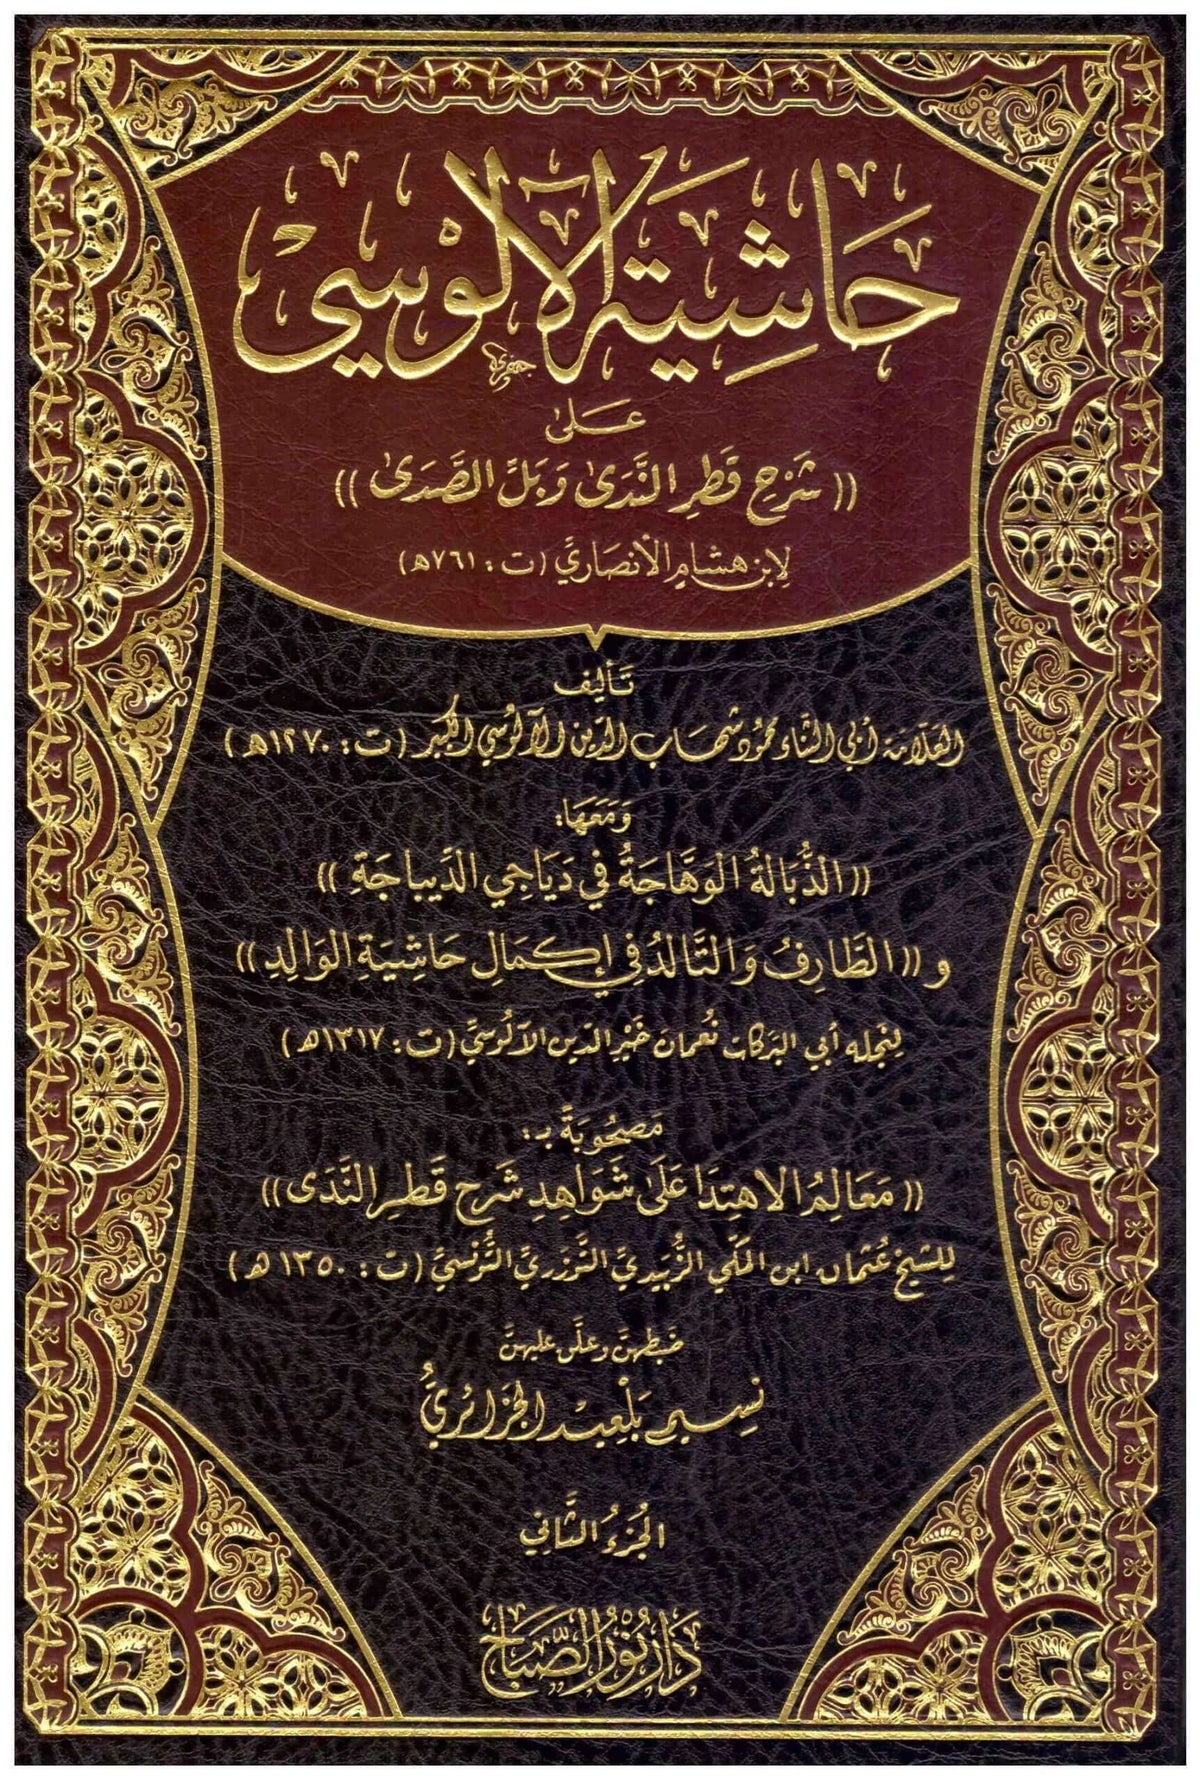 حَاشِيَةُ الآلُوْسِيّ
عَلىٰ
(( شَرْحِ قَطْرِ النَّدَىٰ وَبَلِّ الصَّدَىٰ ))
لِابنِ هشَامٍ الأنصَاريِّ (ت: ٧٦١ه)
تَأليف
العَلّامَة أبي الثّناء محمُود شهَاب الدّين الآلُوسيّ الكَبير (ت: ١٢٧٠ه)
وَمَعَهَا:
(( الذُّبَالَةُ الوَهَّاجَةُ في دَيَاجِي الدِّيبَاجَةِ ))
و (( الطَّارِفُ وَالتَّالدُ في إكمَالِ حَاشِيَةِ الوَالِدِ ))
لِنجله أبي البَركات نُعمَان خَيْر الدّين الآلُوسيِّ (ت: ١٣١٧ه)
مَصحُوبَةً بـ:
(( مَعَالِمُ الاهتِدَا عَلىٰ شَوَاهِدِ شَرْحِ قَطرِ النَّدَى ))
للشيخ عُثمان ابن المَكّي الزُّبَيديِّ التَّوزَريِّ التُّونُسيِّ (ت: ١٣٥٠ه)
ضَبطهنَّ وعلّق عليهنَّ
نسِيم بَلْعِيد الجَزائريُّ
الجُزءُ الثَّاني
دَارُ نُورِ الصَّبَاحِ